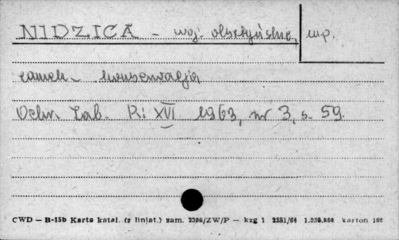 NIDZICA - woj. olsztyńskie, mp.
zamek - konserwacja
Ochr. Zab. R: XVI 1963, nr 3, s. 59.
CWD — B-15b Karta katal. (z liniat.) zam. 2396/ZW/P — kzg 1 2551/64 karton